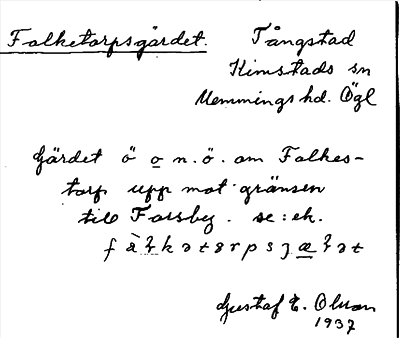 Folketorpsgärdet. Tångstad
Kimstads sn
Memmings hd. Ögl
Gärdet ö o n.ö. om Folkes-
torp upp mot gränsen
till Forsby. se: ek.
Gustaf E. Olsson
1937